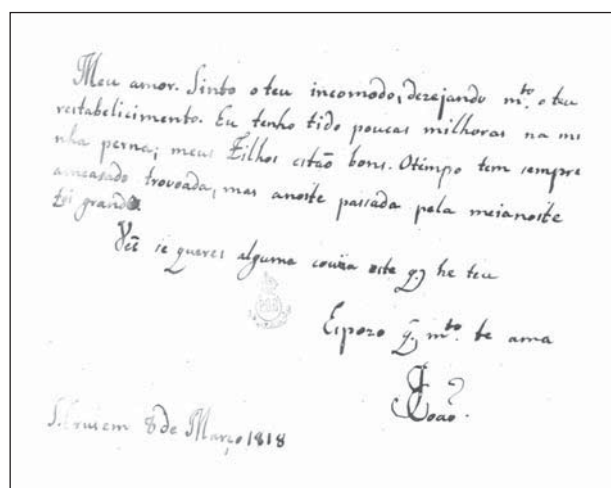 Meu amor. Sinto o teu incomodo, dezejando m.to o teu
restabelicimento. Eu tenho tido poucas milhoras na mi
nha perna; meus Filhos estaõ bons. Otempo tem sempre
ameasado trovoada, mas anoite passada pela meianoite
foi grande.
Vê se queres alguma couza deste q. he teu
Espozo q. m.to te ama
Joaõ.
S. Crus em 8 de Março 1818